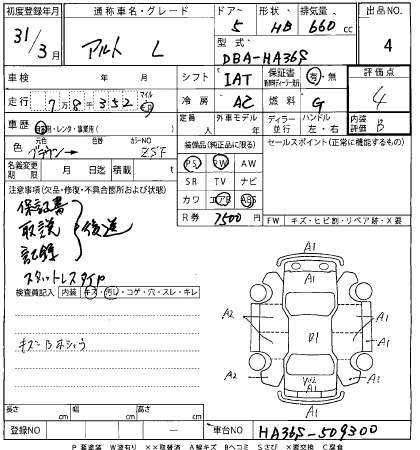 初度登録年月 通称車名・グレード ドア 形状 排気量 出品NO.
31年 3月 アルト L 5 HB 660cc 4
型式 DBA-HA36S
車検 年 月 シフト IAT 保証書 有・無 評価点
走行 7万8千352 マイル km 冷房 AC 燃料 G 4
車歴 自家用・レンタ・事業用( ) 定員 人 外車モデル 年 ディーラー 並行 ハンドル 左・右 内装評価 B
元色 ブラウン→ 色替 カラーNO ZSF 装備品(純正品に限る) セールスポイント(正常に機能するもの)
名義変更期限 月 日迄 積載 t PS PW AW
注意事項(欠品・修復・不具合箇所および状態) SR TV ナビ
保証書 カワ エアB ABS
取説 後送 R券 7500円 FW キズ・ヒビ割・リペア跡・X要
記録
スタットレスタイヤ
検査員記入 内装 キズ・汚レ・コゲ・穴・スレ・キレ
A1
A1
A2 A1
B1
A2 A1
W2
A1
A1
長さ cm 幅 cm 高さ cm
登録NO ― 車台NO HA36S-509300
P 要塗装 W波有り ××取替済 A線キズ Bヘコミ Sさび ×要交換 C腐食